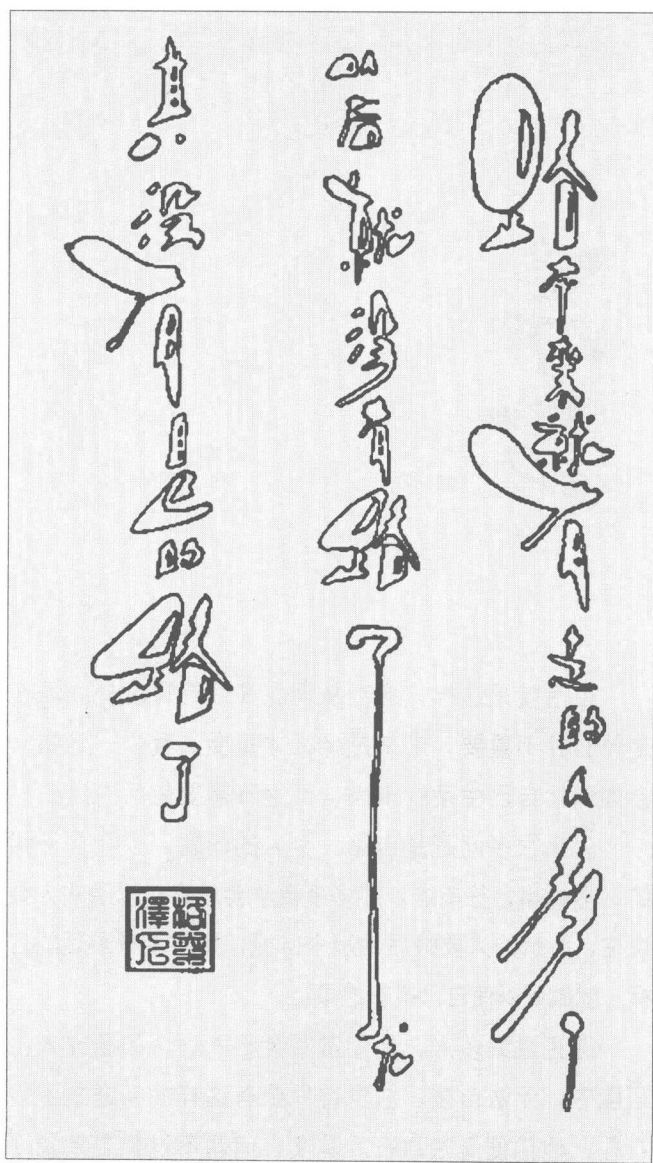 路本来就有走的人多
以后就没有路了
真没有自己的路了